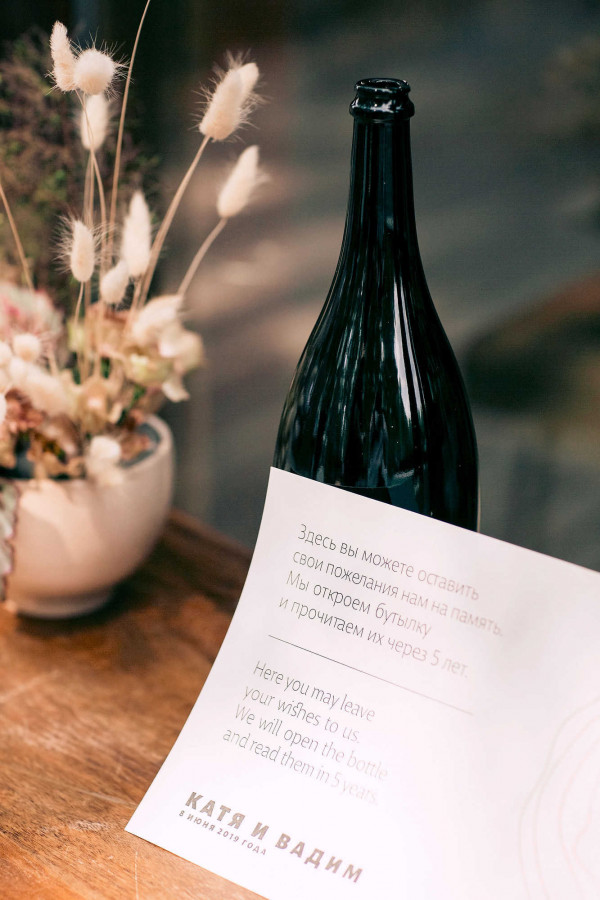 Здесь вы можете оставить
свои пожелания нам на память.
Мы откроем бутылку
и прочитаем их через 5 лет.
Here you may leave
your wishes to us.
We will open the bottle
and read them in 5 years.
КАТЯ И ВАДИМ
8 ИЮНЯ 2019 ГОДА